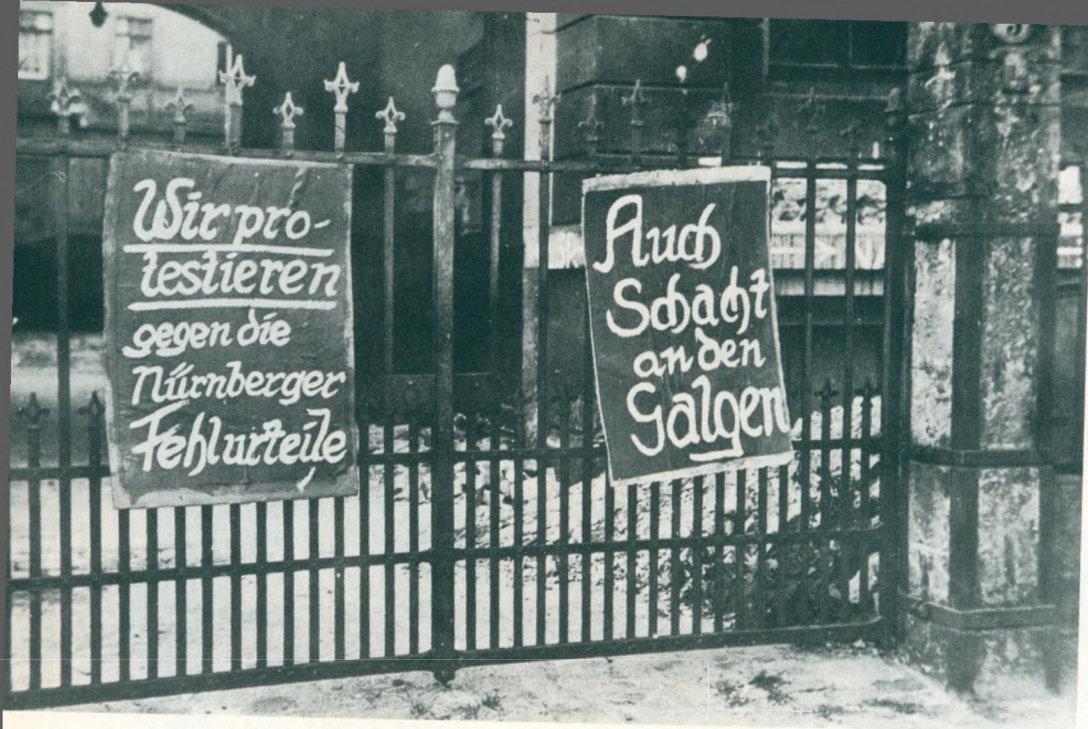 Wir pro-
testieren
gegen die
Nürnberger
Fehlurteile
Auch
Schacht
an den
Galgen